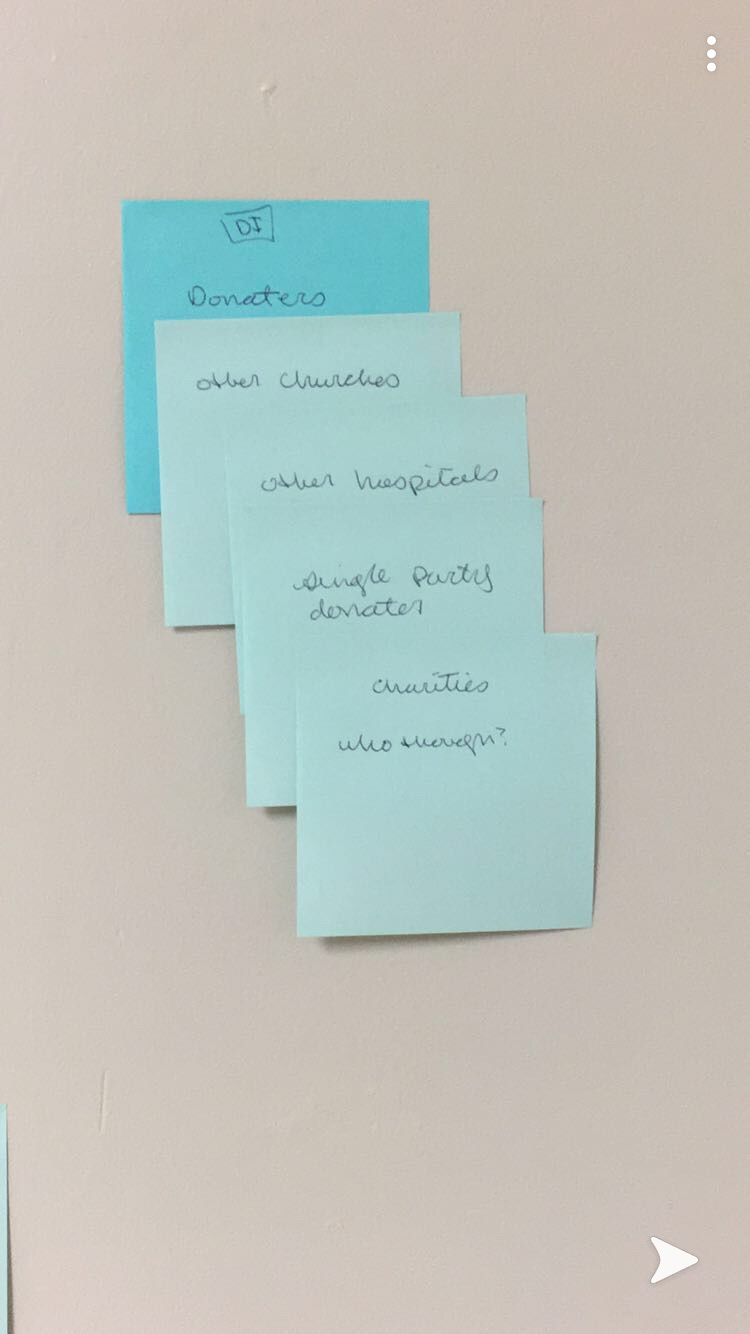 DI
Donaters
other churches
other hospitals
single party
donater
charities
who though?